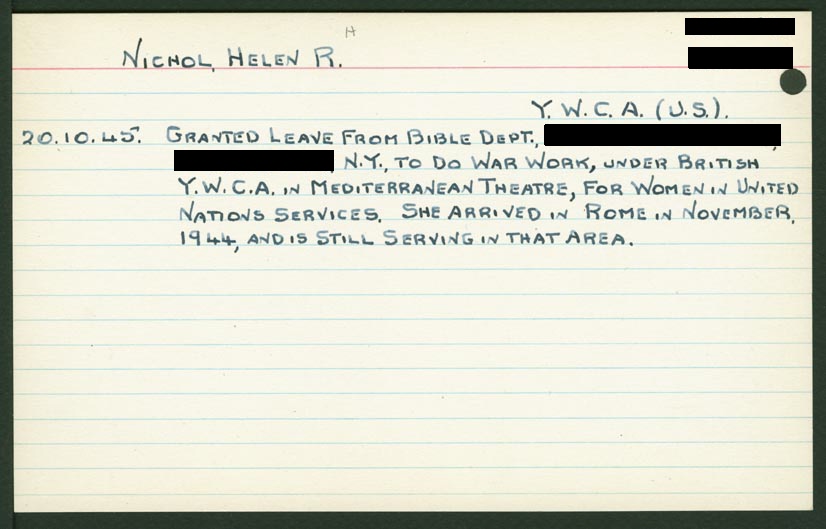 H
NICHOL, HELEN R.
Y. W. C. A. (U.S.).
20.10.45. GRANTED LEAVE FROM BIBLE DEPT.,
N.Y., TO DO WAR WORK, UNDER BRITISH
Y.W.C.A. IN MEDITERRANEAN THEATRE, FOR WOMEN IN UNITED
NATIONS SERVICES. SHE ARRIVED IN ROME IN NOVEMBER,
1944, AND IS STILL SERVING IN THAT AREA.